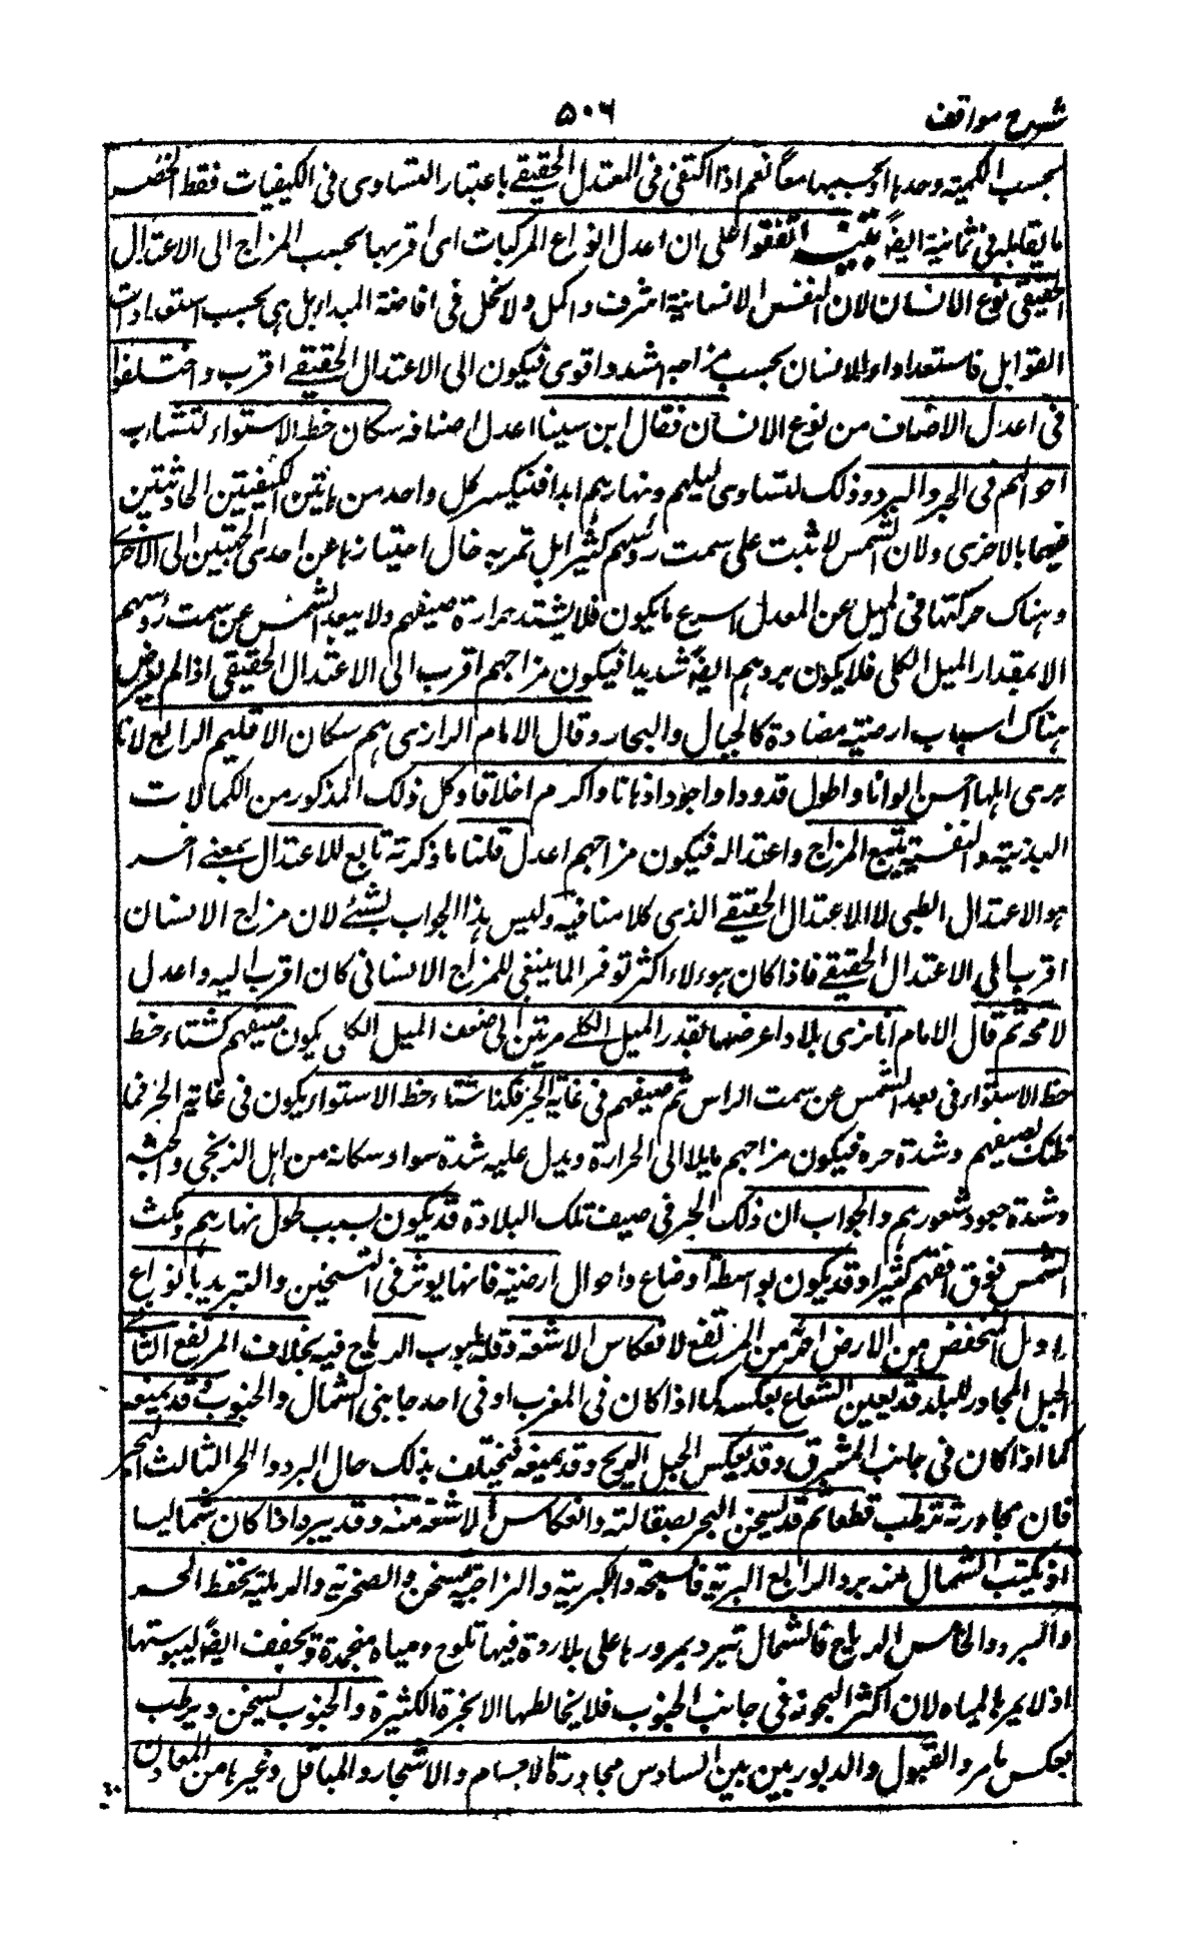 شرح مواقف ۵۰۶
بحسب الكمية وحدها او بحسبهما معاً نعم اذا اكتفى فى المعتدل الحقيقے باعتبار التساوى فى الكيفيات فقط انحصر
ما يقابله فى ثمانية ايضاً تنبيه اتفقوا على ان اعدل انواع المركبات اى اقربها بحسب المزاج الى الاعتدال
الحقيقى نوع الانسان لان النفس الانسانية اشرف واكمل ولا بخل فى افاضة المبدا بل هى بحسب استعدادات
القوابل فاستعداد الانسان بحسب مزاجه اشد واقوى فيكون الى الاعتدال الحقيقے اقرب واختلفوا
فى اعدل الاصناف من نوع الانسان فقال ابن سينا اعدل اصنافه سكان خط الاستواء لتشابه
احوالهم فى الحر والبرد وذلك لتساوى ليلهم ونهارهم ابدا فتنكسر كل واحد من هاتين الكيفيتين الحادثتين
فيهما بالاخرى ولان الشمس لا تثبت على سمت رؤسهم كثيرا بل تمر به حال اجتيازها عن احدى الجهتين الى الاخرے
وهناك حركتها فى الميل عن المعدل اسرع ما يكون فلا يشتد حرارة صيفهم ولا يبعد الشمس عن سمت رؤسهم
الا بمقدار الميل الكلى فلا يكون بردهم ايضاً شديدا فيكون مزاجهم اقرب الى الاعتدال الحقيقى اذا لم يعرض
هناك اسباب ارضية مضادة كالجبال والبحار وقال الامام الرازى هم سكان الاقليم الرابع لانا
نرى اهلها احسن الوانا واطول قدودا واجود اذهانا واكرم اخلاقا وكل ذلك المذكور من الكمالات
البدنية والنفسية يتبع المزاج واعتداله فيكون مزاجهم اعدل قلنا ما ذكرته تابع للاعتدال بمعنے آخر
هو الاعتدال الطبى لا الاعتدال الحقيقے الذى كلامنا فيه وليس هذا الجواب بشئے لان مزاج الانسان
اقرب الى الاعتدال الحقيقے فاذا كان هؤلاء اكثر توفرا لما ينبغى للمزاج الانسانى كان اقرب اليه واعدل
لا محة ثم قال الامام انا نرى بلادا عرضها بقدر الميل الكلے مرتين اى ضعف الميل الكلى يكون صيفهم كشتاء خط
خط الاستواء فى بعد الشمس عن سمت الراس ثم صيفهم فى غاية الحر فكذا شتاء خط الاستواء يكون فى غاية الحر فما
ظنك بصيفهم وشدة حره فيكون مزاجهم مايلا الى الحرارة ويدل عليه شدة سواد سكانه من اهل الزنجى والحبشه
وشدة جعود شعورهم والجواب ان ذلك الحر فى صيف تلك البلادة قد يكون بسبب طول نهارهم ومكث
الشمس فوق افقهم كثيرا وقد يكون بواسطة اوضاع واحوال ارضية فانها يوثر فى التسخين والتبريد بانواع
الاول المنخفض من الارض احر من المرتفع لانعكاس الاشعة وقلة هبوب الرياح فيه بخلاف المرتفع الثانے
الجبل المجاور للبلد قد يعين الشعاع بعكسه كما اذا كان فى المغرب او فى احد جانبى الشمال والجنوب وقد يمنعه
كما اذا كان فى جانب المشرق وقد يعكس الجبل الريح وقد يمنعه فيختلف بذلك حال البرد والحر الثالث البحر
فان مجاورته ترطب قطعا ثم قد يسخن البحر بصقالته وانعكاس الاشعة منه وقد يبرد اذا كان شماليا
اذ يكتسب الشمال منه بردا الرابع التربة فالسبخة والكبريتية والزاجية تسخن والصخرية والرملية يحفظ الحر
والبرد والخامس الرياح فالشمال تبرد بمرورها على بلاد باردة فيها ثلوج ومياه منجمدة وتجفف ايضاً ليبوستها
اذ لا يمر بالمياه لان اكثر البحور فى جانب الجنوب فلا يخالطها الابخرة الكثيرة والجنوب يسخن ويرطب
بعكس ما مر والقبول والدبور بين بين السادس مجاورة الاجسام والاشجار والمباقل وغيرها من المعادن